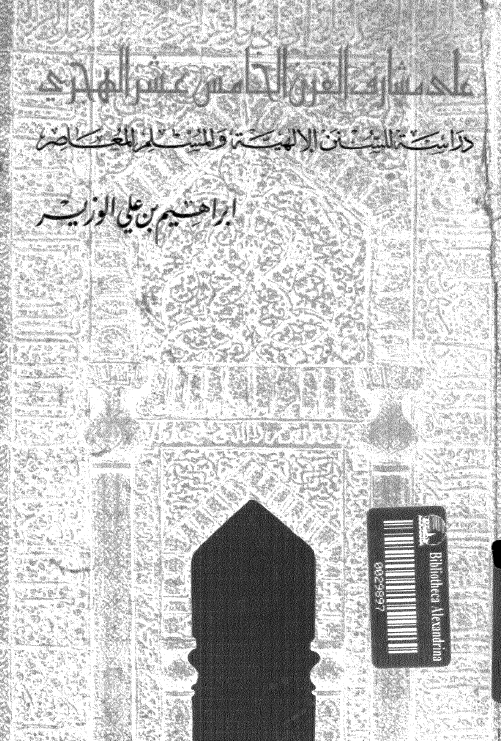 على مشارف القرن الخامس عشر الهجري
دراسة للسنن الإلهية والمسلم المعاصر
ابراهيم بن علي الوزير
Bibliotheca Alexandrina
0029897